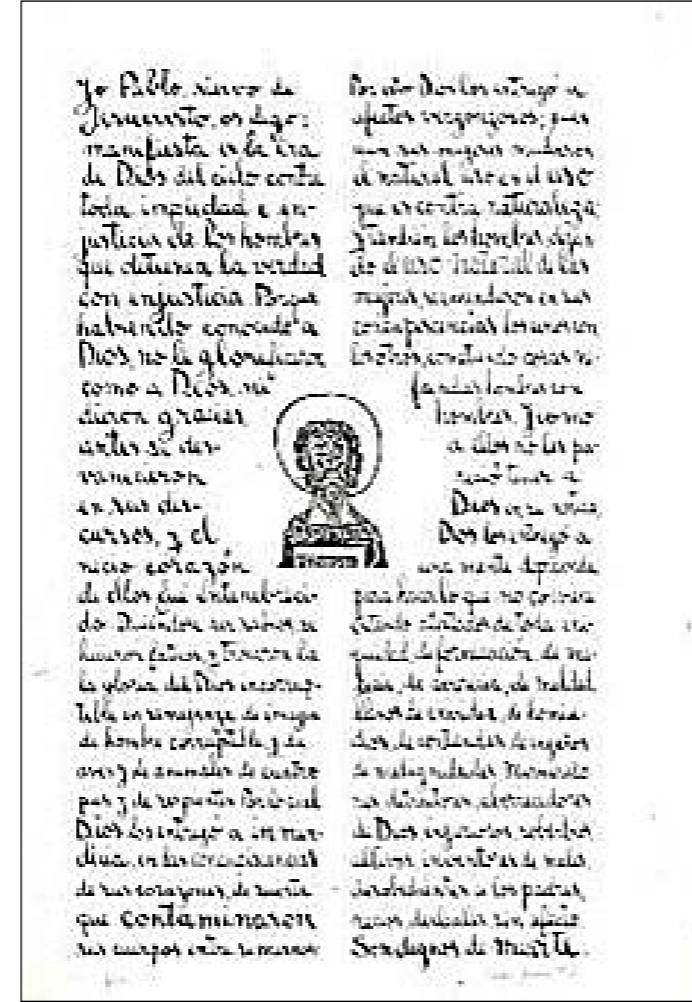 Yo Pablo, siervo de
Jesucristo, os digo:
manifiesta es la ira
de Dios del cielo contra
toda impiedad e in-
justicia de los hombres
que detienen la verdad
con injusticia. Porque
habiendo conocido a
Dios, no le glorificaron
como a Dios, ni
dieron gracias
antes se des-
vanecieron
en sus dis-
cursos, y el
necio corazón
de ellos fué entenebreci-
do. Diciéndose ser sabios, se
hicieron fatuos, y trocaron la
la gloria del Dios incorrup-
tible en semejanza de imagen
de hombre corruptible, y de
aves y de animales de cuatro
pies y de serpientes. Por lo cual
Dios los entregó a inmun-
dicia, en las concupiscencias
de sus corazones, de suerte
que contaminaron
sus cuerpos entre sí mismos
Por esto Dios los entregó a
afectos vergonzosos; pues
aun sus mujeres mudaron
el natural uso en el uso
que es contra naturaleza
y también los hombres dejan-
do el uso natural de las
mujeres, se encendieron en sus
concupiscencias los unos con
los otros, cometiendo cosas ne-
fandas hombres con
hombres. Y como
a ellos no les pa-
reció tener a
Dios en su noticia,
Dios los entregó a
una mente depravada
para hacer lo que no conviene
estando atestados de toda ini-
quidad, de fornicación, de ma-
licia, de avaricia, de maldad
llenos de envidia, de homici-
dios, de contiendas, de engaños
de malignidades. Murmurado-
res, detractores, aborrecedores
de Dios, injuriosos, soberbios
altivos, inventores de males,
desobedientes a los padres,
necios, desleales, sin afecto
Son dignos de muerte.